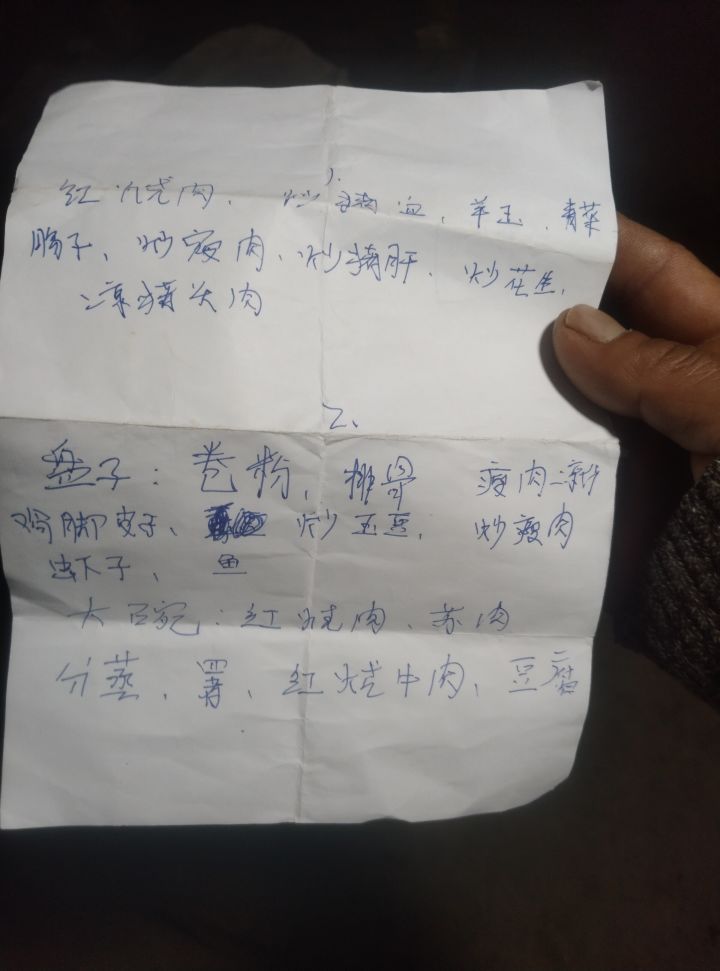 1、
红烧肉、炒猪血、羊玉、青菜
肠子、炒瘦肉、炒猪肝、炒花生、
凉猪头肉
2、
盘子：卷粉、排骨 瘦肉凉
鸡脚皮子、炒玉豆、炒瘦肉
虫下子、鱼
大碗：红烧肉、苏肉
蒸、红烧牛肉、豆腐